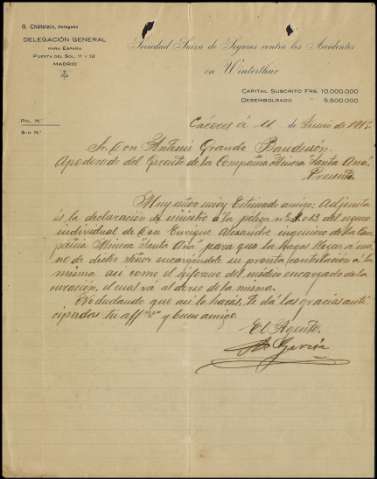 G. Châtelain, Delegado
DELEGACIÓN GENERAL
PARA ESPAÑA
PUERTA DEL SOL, 11 y 12
MADRID
Sociedad Suiza de Seguros contra los Accidentes
en Winterthur
CAPITAL SUSCRITO FRS. 10.000.000
DESEMBOLSADO 5.500.000
Pól. N.º
Sin N.º
Cáceres á 11 de Enero de
Sr. Don Antonio Grande
Apoderado del Grosito de la Compañia Minera Santa Ana.
Presente
Muy Sr. mio y Estimado amigo: Adjunta
és la declaración de siniestro á la poliza nº del seguro
individual de Don Enrique Alexandre ingeniero de la Com
pañia Minera "Santa Ana" para que la hagas llegar á ma
no de dicho Señor encargándole su pronta contestación á la
misma asi como el informe del médico encargado de la
curación, el cual vá al dorso de la misma.
No dudando que asi lo harás, te dá las gracias anti
cipadas tu aff.mo y buen amigo.
El Agente,
García